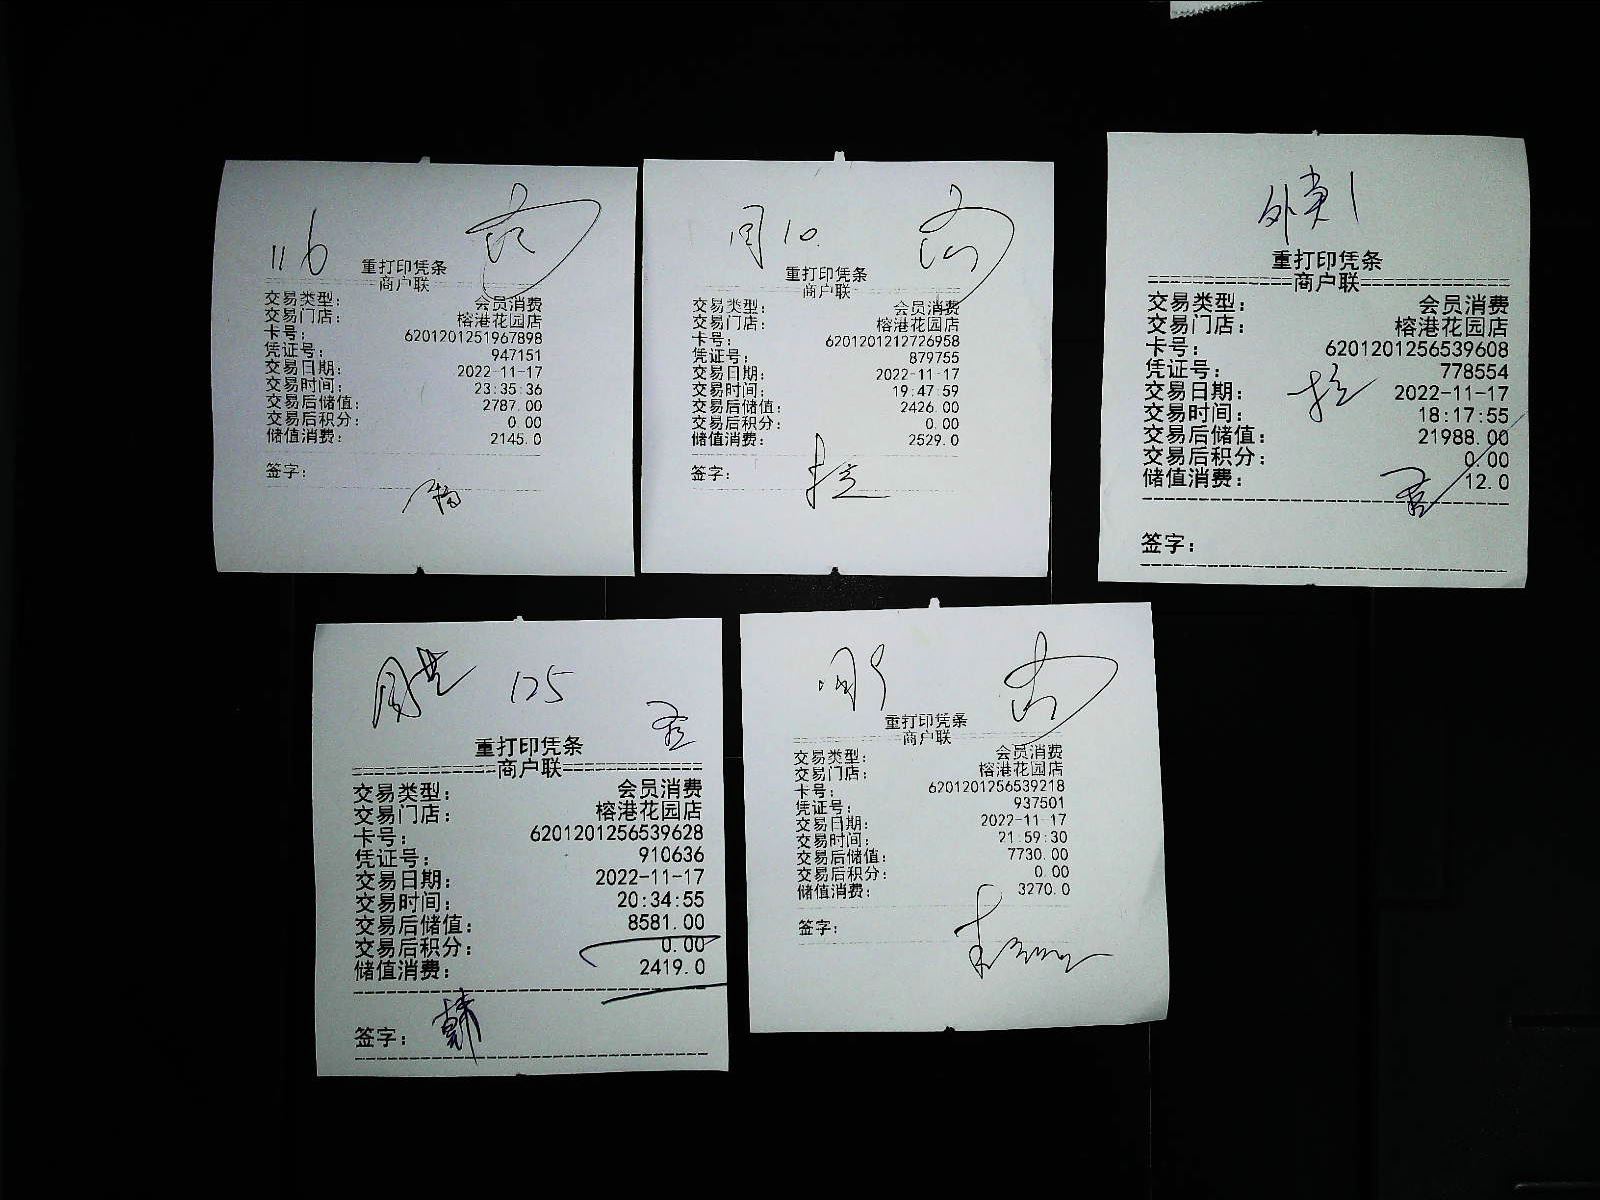 116
重打印凭条
商户联
交易类型： 会员消费
交易门店： 榕港花园店
卡号： 6201201251967898
凭证号： 947151
交易日期： 2022-11-17
交易时间： 23:35:36
交易后储值： 2787.00
交易后积分： 0.00
储值消费： 2145.0
签字：
10
重打印凭条
商户联
交易类型： 会员消费
交易门店： 榕港花园店
卡号： 6201201212726958
凭证号： 879755
交易日期： 2022-11-17
交易时间： 19:47:59
交易后储值： 2426.00
交易后积分： 0.00
储值消费： 2529.0
签字：
外卖1
重打印凭条
商户联
交易类型： 会员消费
交易门店： 榕港花园店
卡号： 6201201256539608
凭证号： 778554
交易日期： 2022-11-17
交易时间： 18:17:55
交易后储值： 21988.00
交易后积分： 0.00
储值消费： 12.0
签字：
125
重打印凭条
商户联
交易类型： 会员消费
交易门店： 榕港花园店
卡号： 6201201256539628
凭证号： 910636
交易日期： 2022-11-17
交易时间： 20:34:55
交易后储值： 8581.00
交易后积分： 0.00
储值消费： 2419.0
签字：
重打印凭条
商户联
交易类型： 会员消费
交易门店： 榕港花园店
卡号： 6201201256539218
凭证号： 937501
交易日期： 2022-11-17
交易时间： 21:59:30
交易后储值： 7730.00
交易后积分： 0.00
储值消费： 3270.0
签字：